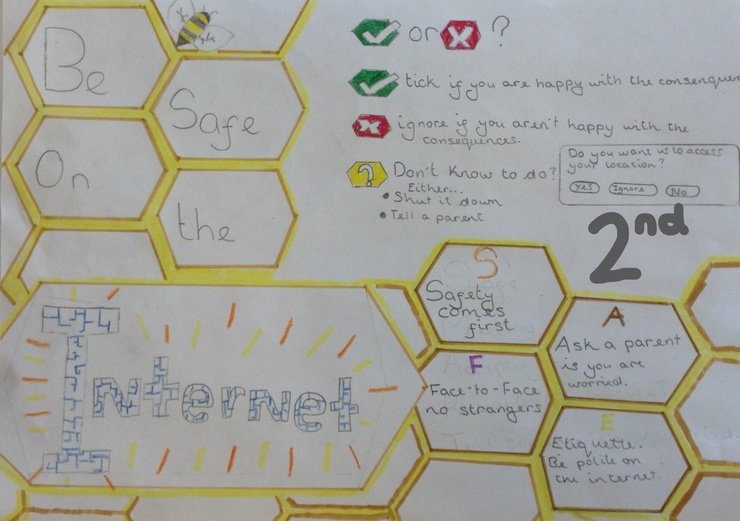 Be
Safe
On
the
Internet
or ?
tick if you are happy with the consenquen
ignore if you aren't happy with the
consequences.
? Don't know to do?
Either...
• Shut it down
• Tell a parent
Do you want us to access
your location?
Yes Ignore No
2nd
S
Safety
comes
first
A
Ask a parent
is you are
worried.
F
Face-to-Face
no strangers
E
Etiquette.
Be polite on
the internet.